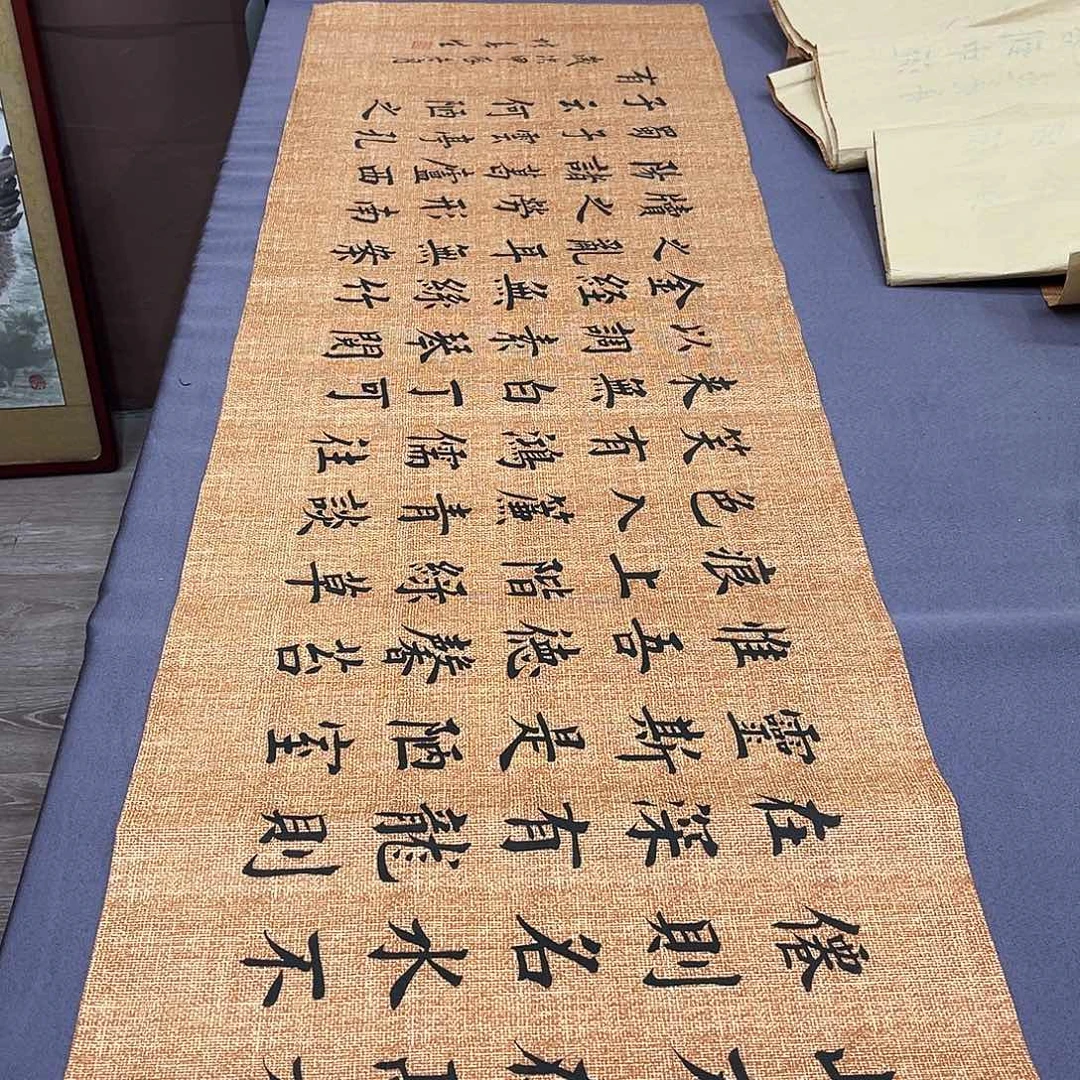 僊則名水不
在深有龍則
靈斯是陋室
惟吾德馨苔
痕上階綠草
色入簾青談
笑有鴻儒往
来無白丁可
以調素琴閱
金経無絲竹
之亂耳無案
牘之勞形南
陽諸葛廬西
蜀子雲亭孔
子云何陋之
有